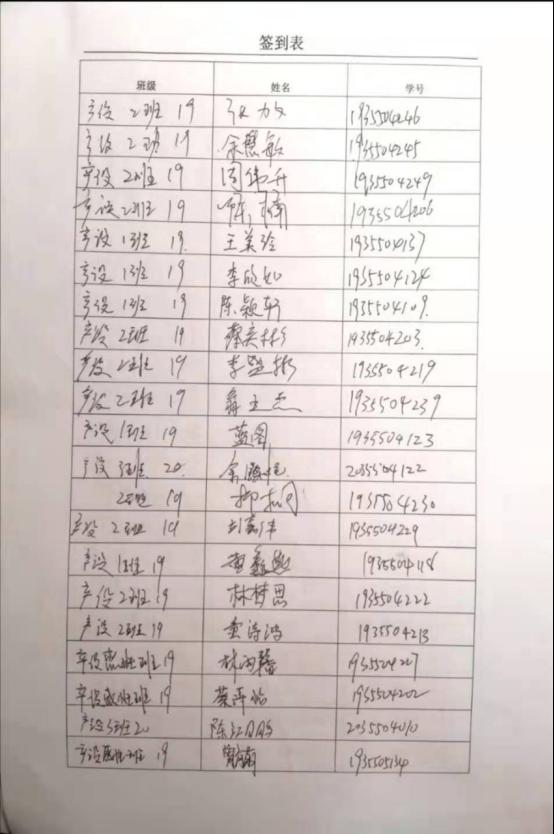 签到表
班级 姓名 学号
产设 2班 19 张放 1935504246
产设 2班 19 余慧敏 1935504245
产设 2班 19 周伟升 1935504249
产设 2班 19 陈楠 1935504206
产设 1班 19. 王美玲 1935504137
产设 1班 19 李欣如 1935504124
产设 1班 19 陈颖轩 1935504109.
产设 2班 19 蔡奕彬 1935504203.
产设 2班 19 李 彬 1935504219
产设 2班 19 1935504239
产设 1班 19 蓝图 1935504123
产设 班 20. 余 2035504122
2班 19 柳 1935504230
产设 2班 19 1935504229
产设 1班 19 黄 1935504118
产设 2班 19 林梦思 1935504222
产设 2班 19 黄诗鸿 1935504213
产设 班 19 林 1935504227
产设 班 19 蔡萍 1935504202
产设 班 20 陈江 2035504010
产设 班 19 1935505134